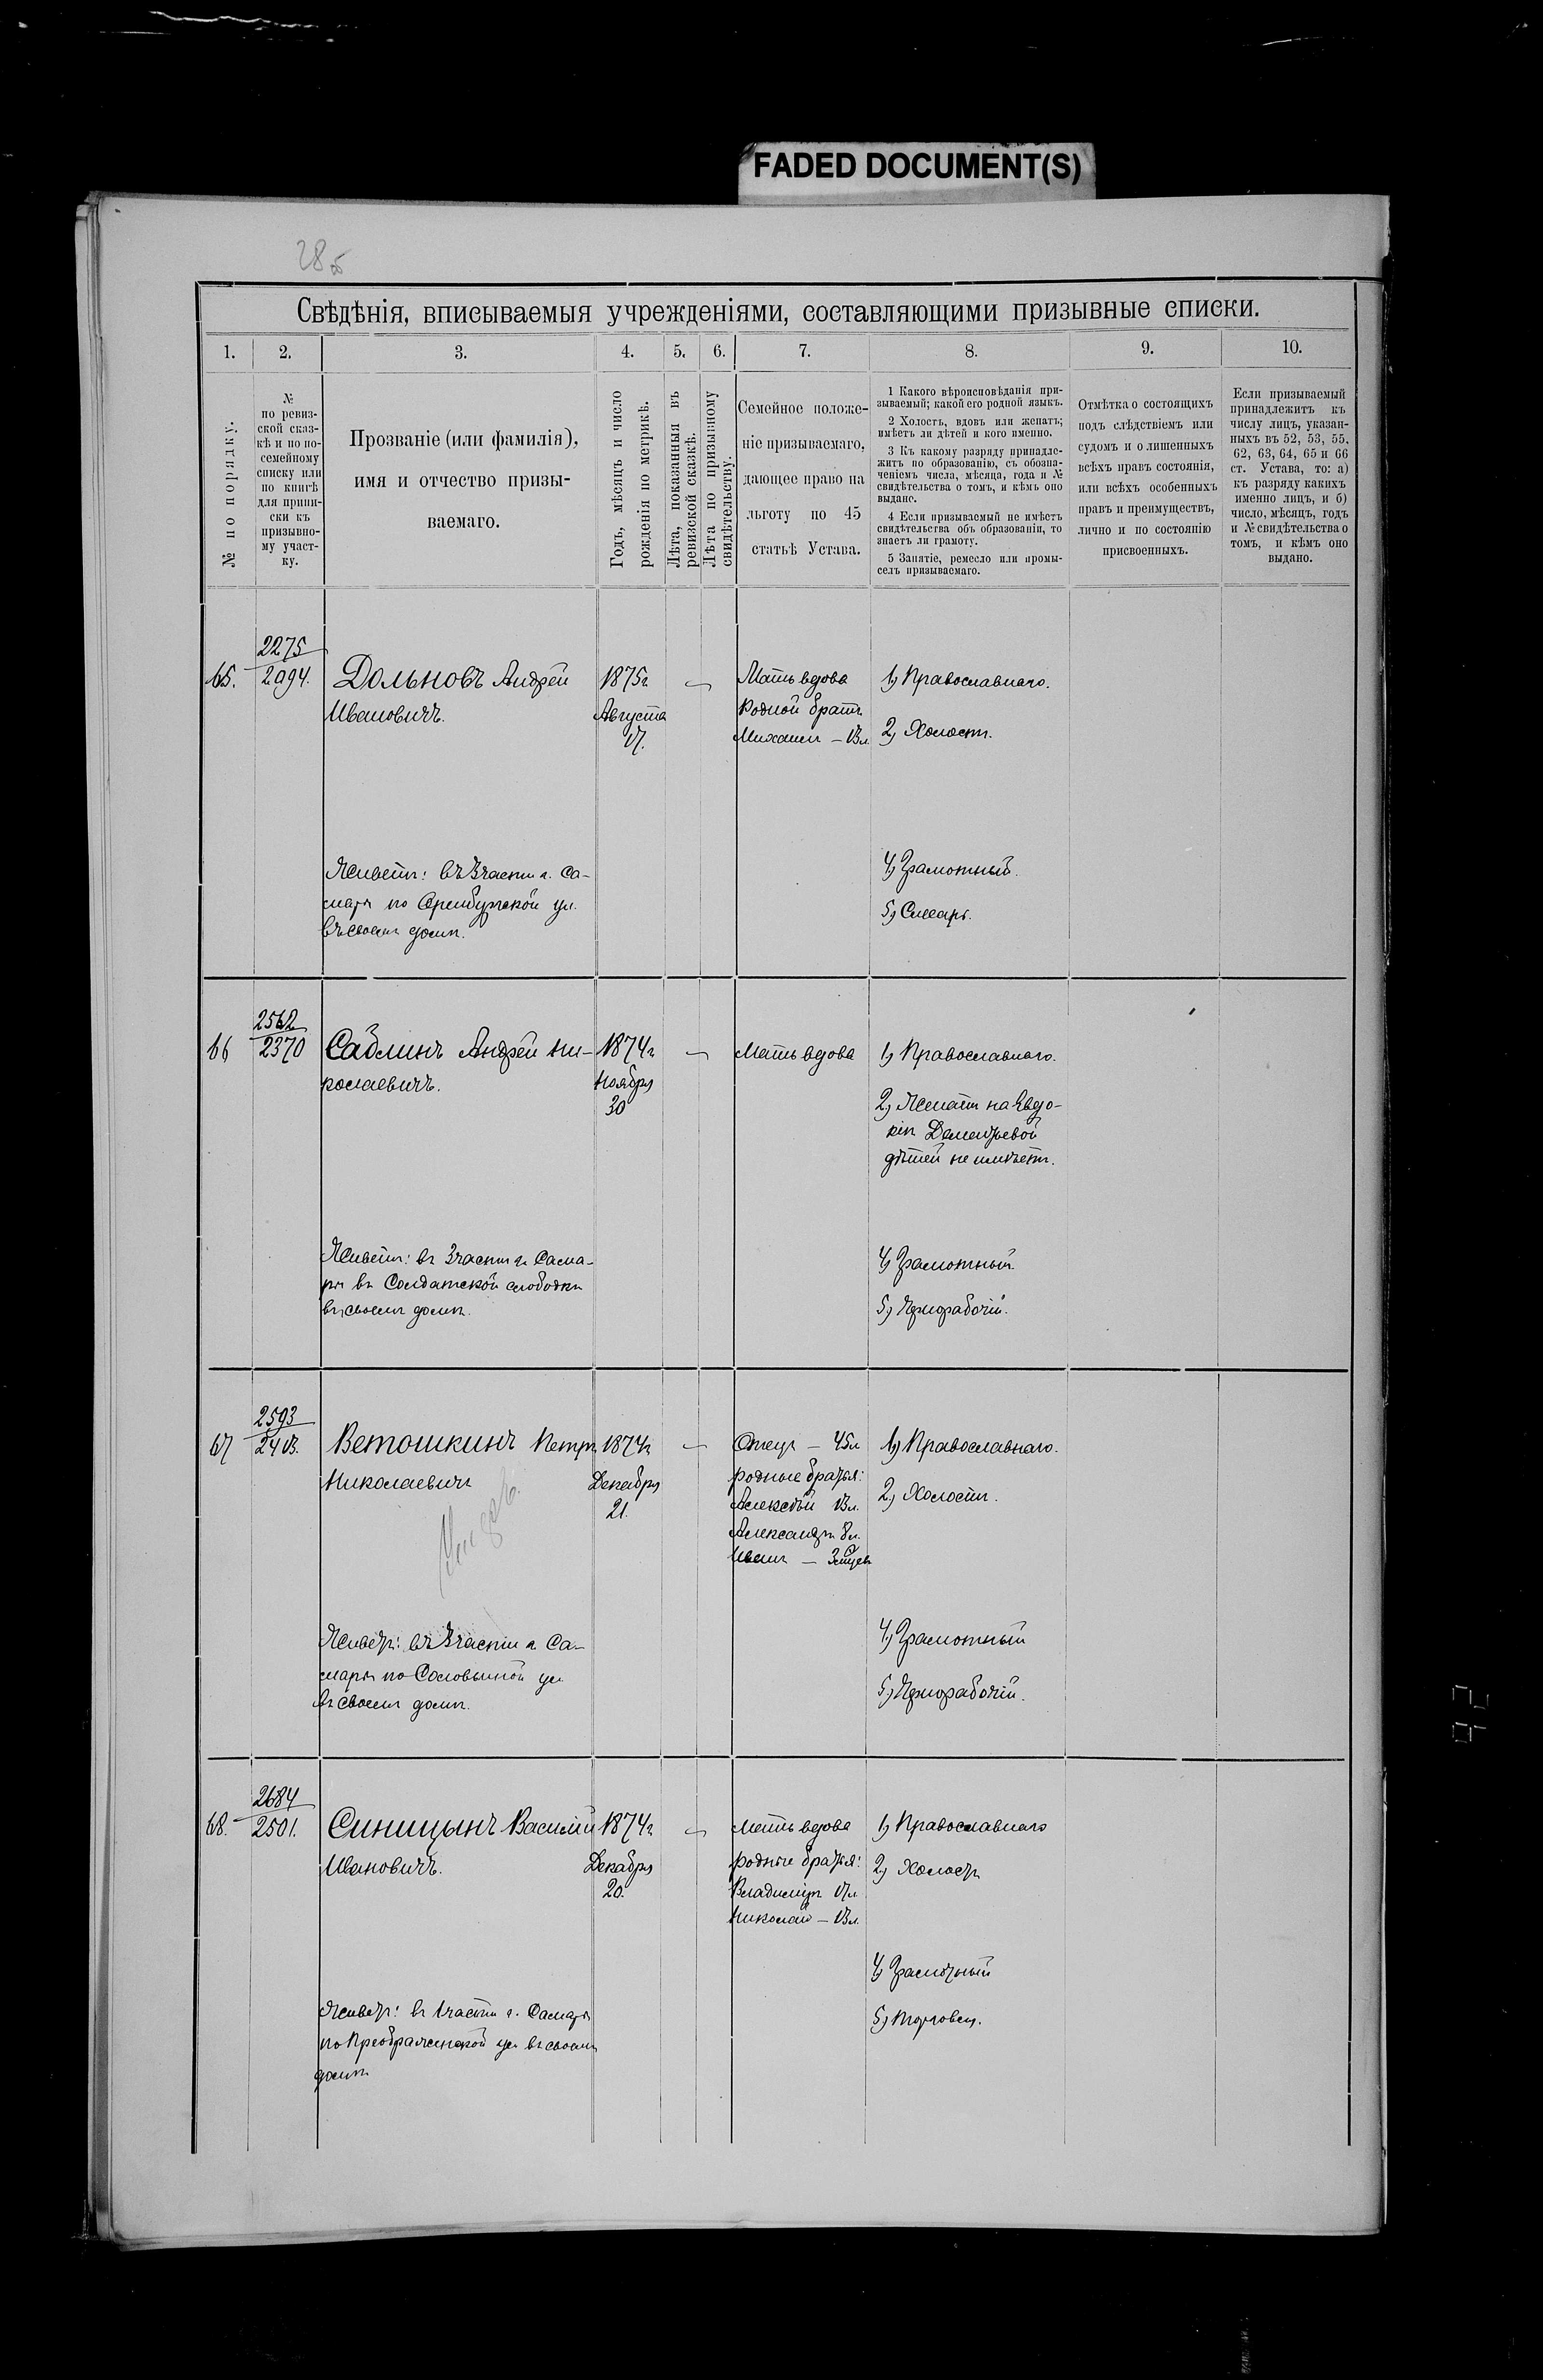 FADED DOCUMENT(S)
28 об
Свѣдѣнія, вписываемыя учрежденіями, составляющими призывные списки.
1. 2. 3. 4. 5. 6. 7. 8. 9. 10.
№ по порядку.
№
по ревиз-
ской сказ-
кѣ и по по-
семейному
списку или
по книгѣ
для припи-
ски къ
призывно-
му участ-
ку.
Прозваніе (или фамилія),
имя и отчество призы-
ваемаго.
Годъ, мѣсяцъ и число
рожденія по метрикѣ.
Лѣта, показанныя въ
ревизской сказкѣ.
Лѣта по призывному
свидѣтельству.
Семейное положе-
ніе призываемаго,
дающее право на
льготу по 45
статьѣ Устава.
1 Какого вѣроисповѣданія при-
зываемый; какой его родной языкъ.
2 Холостъ, вдовъ или женатъ;
имѣетъ ли дѣтей и кого именно.
3 Къ какому разряду принадле-
житъ по образованію, съ обозна-
ченіемъ числа, мѣсяца, года и №
свидѣтельства о томъ, и кѣмъ оно
выдано.
4 Если призываемый не имѣетъ
свидѣтельства объ образованіи, то
знаетъ ли грамоту.
5 Занятіе, ремесло или промы-
селъ призываемаго.
Отмѣтка о состоящихъ
подъ слѣдствіемъ или
судомъ и о лишенныхъ
всѣхъ правъ состоянія,
или всѣхъ особенныхъ
правъ и преимуществъ,
лично и по состоянію
присвоенныхъ.
Если призываемый
принадлежитъ къ
числу лицъ, указан-
ныхъ въ 52, 53, 55,
62, 63, 64, 65 и 66
ст. Устава, то: а)
къ разряду какихъ
именно лицъ, и б)
число, мѣсяцъ, годъ
и № свидѣтельства о
томъ, и кѣмъ оно
выдано.
65.
2275
2094.
Дольновъ Андрей
Ивановичъ.
Живетъ: въ 3 части г. Са-
марѣ по Оренбургской ул.
въ своемъ домѣ.
1875г
Августа
17.
Мать вдова
Родной братъ
Михаилъ – 13л.
1) Православнаго.
2) Холостъ.
4) Грамотный.
5) Слесарь.
66
2562
2370
Саблинъ Андрей Ни-
колаевичъ.
Живетъ: въ 3 части г. Сама-
рѣ въ Солдатской слободкѣ
въ своемъ домѣ.
1874г
Ноября
30
Мать вдова
1) Православнаго.
2) Женатъ на Евдо-
кіи Дементьевой
дѣтей не имѣетъ.
4) Грамотный.
5) Чернорабочій.
67
2593
2413.
Ветошкинъ Петръ
Николаевичъ
Живетъ: въ 3 части г. Са-
марѣ по Соловьиной ул
въ своемъ домѣ.
1874г
Декабря
21.
Отецъ – 45л
родные братья:
Алексѣй 13л.
Александръ 8л.
Иванъ – 3 мцев
1) Православнаго.
2) Холостъ.
4) Грамотный
5) Чернорабочій.
68.
2684
2501.
Синицынъ Василій
Ивановичъ.
Живетъ: въ 1 части г. Самарѣ
по Преображенской ул въ своемъ
домѣ
1874г
Декабря
20.
Мать вдова
родные братья:
Владиміръ 17л
Николай – 13л.
1) Православнаго
2) Холостъ
4) Грамотный
5) Торговецъ.
92